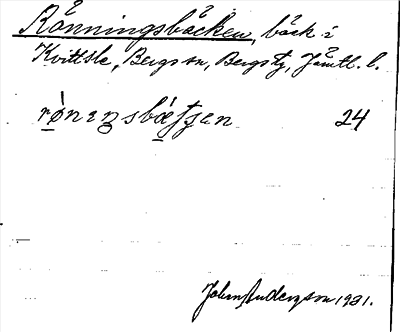 Rönningsbäcken, bäck i
Kvittsle, Bergs sn, Bergs tg, Jämtl. l.
rönıŋsbæʃʃen 24
John Anderzson 1931.